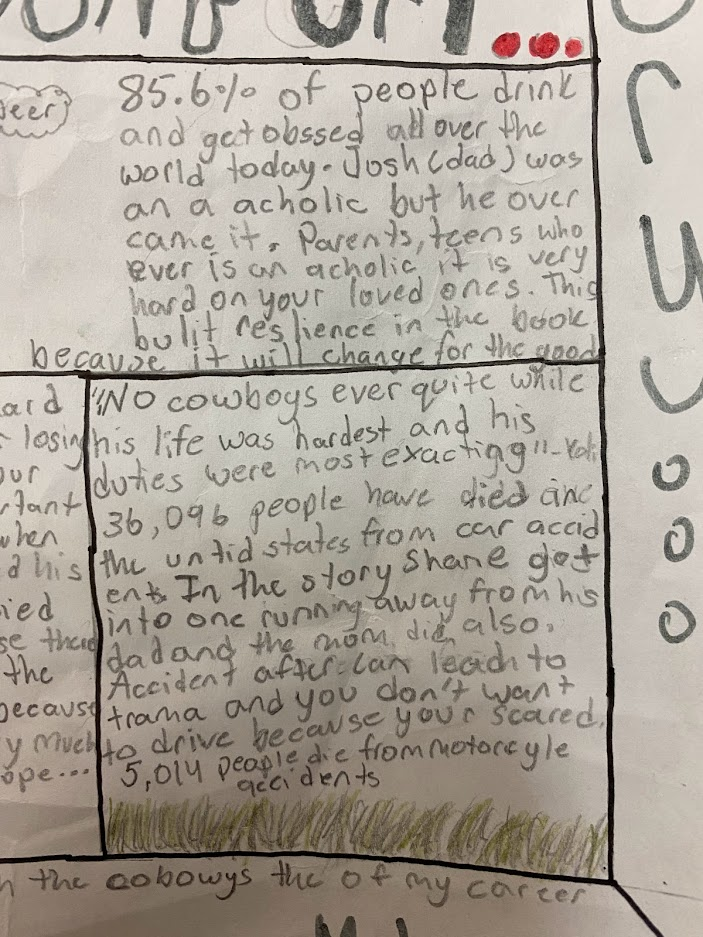 beer
85.6% of people drink
and get obssed all over the
world today. Josh (dad) was
an a acholic but he over
came it. Parents, teens who
ever is an acholic it is very
hard on your loved ones. This
bulit reslience in the book
because it will change for the good
"No cowboys ever quite while
his life was hardest and his
duties were most exacting"-
36,096 people have died
the untid states from car accid
ents In the story Shane got
into one running away from his
dad and the mom did also.
Accident after can leach to
trama and you don't want
to drive because your scared.
5,014 people die from motorcyle
accidents
losing
when
his
the
because
the oobowys the of my career